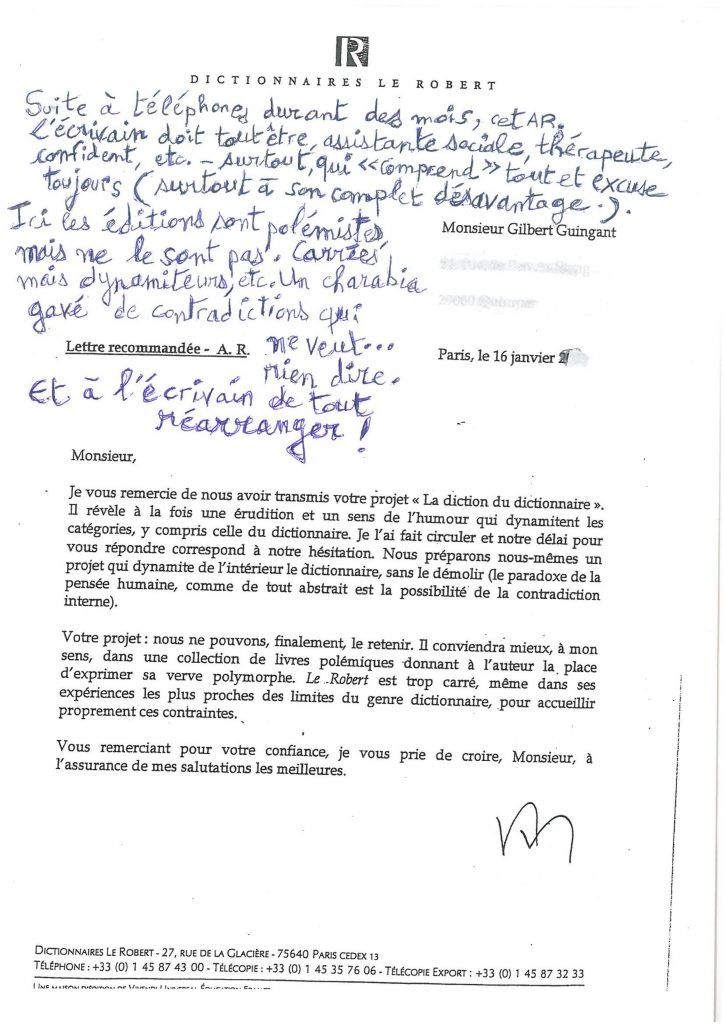 R
DICTIONNAIRES LE ROBERT
Suite à téléphones durant des mois, cet AR.
l'écrivain doit tout être, assistante sociale, thérapeute,
confident, etc. - surtout, qui <<comprend>> tout et excuse
toujours (surtout à son complet désavantage.).
Ici les éditions sont polémistes
mais ne le sont pas. Carrées
mais dynamiteurs, etc. Un charabia
gavé de contradictions qui
ne veut...
rien dire.
Et à l'écrivain de tout
réarranger !
Monsieur Gilbert Guingant
Lettre recommandée - A. R.
Paris, le 16 janvier
Monsieur,
Je vous remercie de nous avoir transmis votre projet « La diction du dictionnaire ».
Il révèle à la fois une érudition et un sens de l'humour qui dynamitent les
catégories, y compris celle du dictionnaire. Je l'ai fait circuler et notre délai pour
vous répondre correspond à notre hésitation. Nous préparons nous-mêmes un
projet qui dynamite de l'intérieur le dictionnaire, sans le démolir (le paradoxe de la
pensée humaine, comme de tout abstrait est la possibilité de la contradiction
interne).
Votre projet : nous ne pouvons, finalement, le retenir. Il conviendra mieux, à mon
sens, dans une collection de livres polémiques donnant à l'auteur la place
d'exprimer sa verve polymorphe. Le Robert est trop carré, même dans ses
expériences les plus proches des limites du genre dictionnaire, pour accueillir
proprement ces contraintes.
Vous remerciant pour votre confiance, je vous prie de croire, Monsieur, à
l'assurance de mes salutations les meilleures.
DICTIONNAIRES LE ROBERT - 27, RUE DE LA GLACIÈRE - 75640 PARIS CEDEX 13
TÉLÉPHONE : +33 (0) 1 45 87 43 00 - TÉLÉCOPIE : +33 (0) 1 45 35 76 06 - TÉLÉCOPIE EXPORT : +33 (0) 1 45 87 32 33
UNE MAISON D'ÉDITION DE VIVENDI UNIVERSAL ÉDUCATION FRANCE